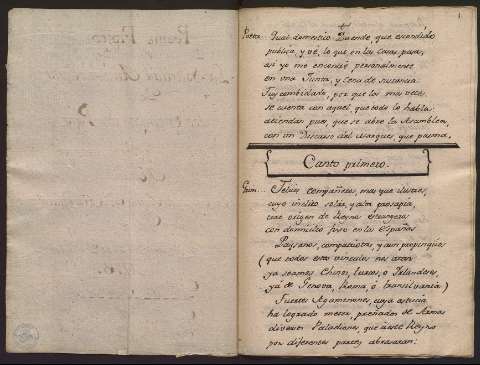 Poeta. Qual domestico Duende, que escondido
publica, y vé, lo que en las casas pasa,
asi yo me encontré personalmente
en una Junta, y Cena de sustancia.
Fuy combidado, por que las mas veces
se cuenta con aquel, que todo lo habla
atiendan pues que se abre la Asamblea,
con un Discurso del Marques, que pasma.
Canto primero.
Felices compañeros, mas que ilustres,
cuyo inclito solar, y alta prosapia,
trae origen de Reyno estrangero
con domicilio fixo en las Españas
Paysanos, compatriotas, y aun propinquos
(que todos estos vinculos nos atan
ya seamos Chinos, turcos, o Irlandeses,
yá de Genova, Roma, ó transilvania)
Fuertes Agamenones, cuya astucia
ha logrado meter, preñados de Armas
diversos Paladiones, que á este Reyno
por diferentes partes abrasaran: